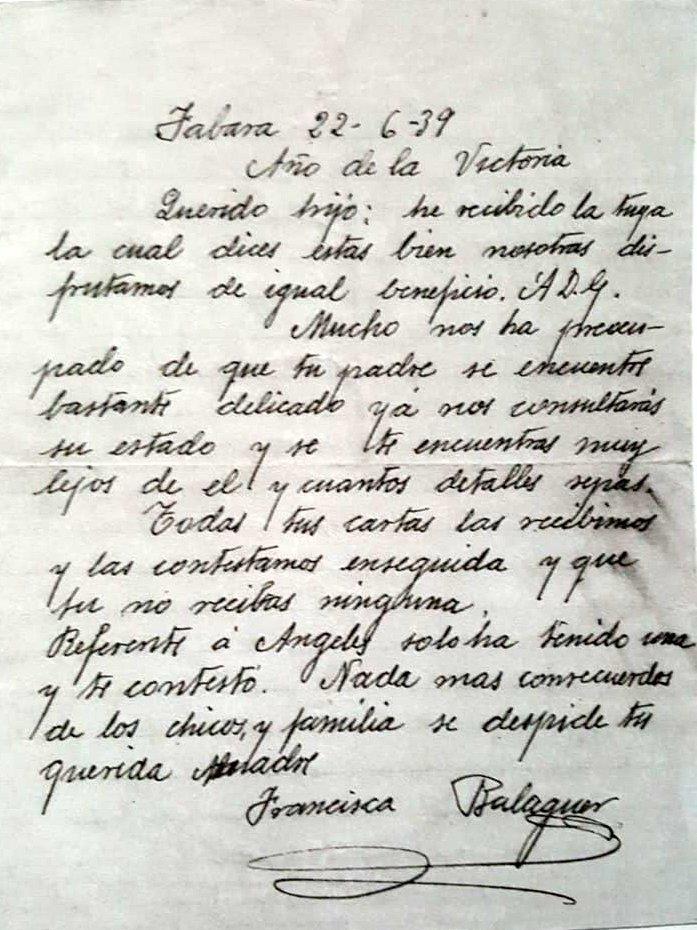 Fabara 22-6-39
Año de la Victoria
Querido hijo; he recibido la tuya
la cual dices estas bien nosotras dis-
frutamos de igual beneficio. A D.G.
Mucho nos ha preocu-
pado de que tu padre se encuentre
bastante delicado ya nos consultarás
su estado y se te encuentras muy
lejos de el y cuantos detalles sepas.
Todas tus cartas las recibimos
y las contestamos enseguida y que
tu no recibas ninguna.
Referente á Angeles solo ha tenido una
y te contestó. Nada mas con recuerdos
de los chicos, y familia se despide tu
querida Madre
Francisca Balaguer